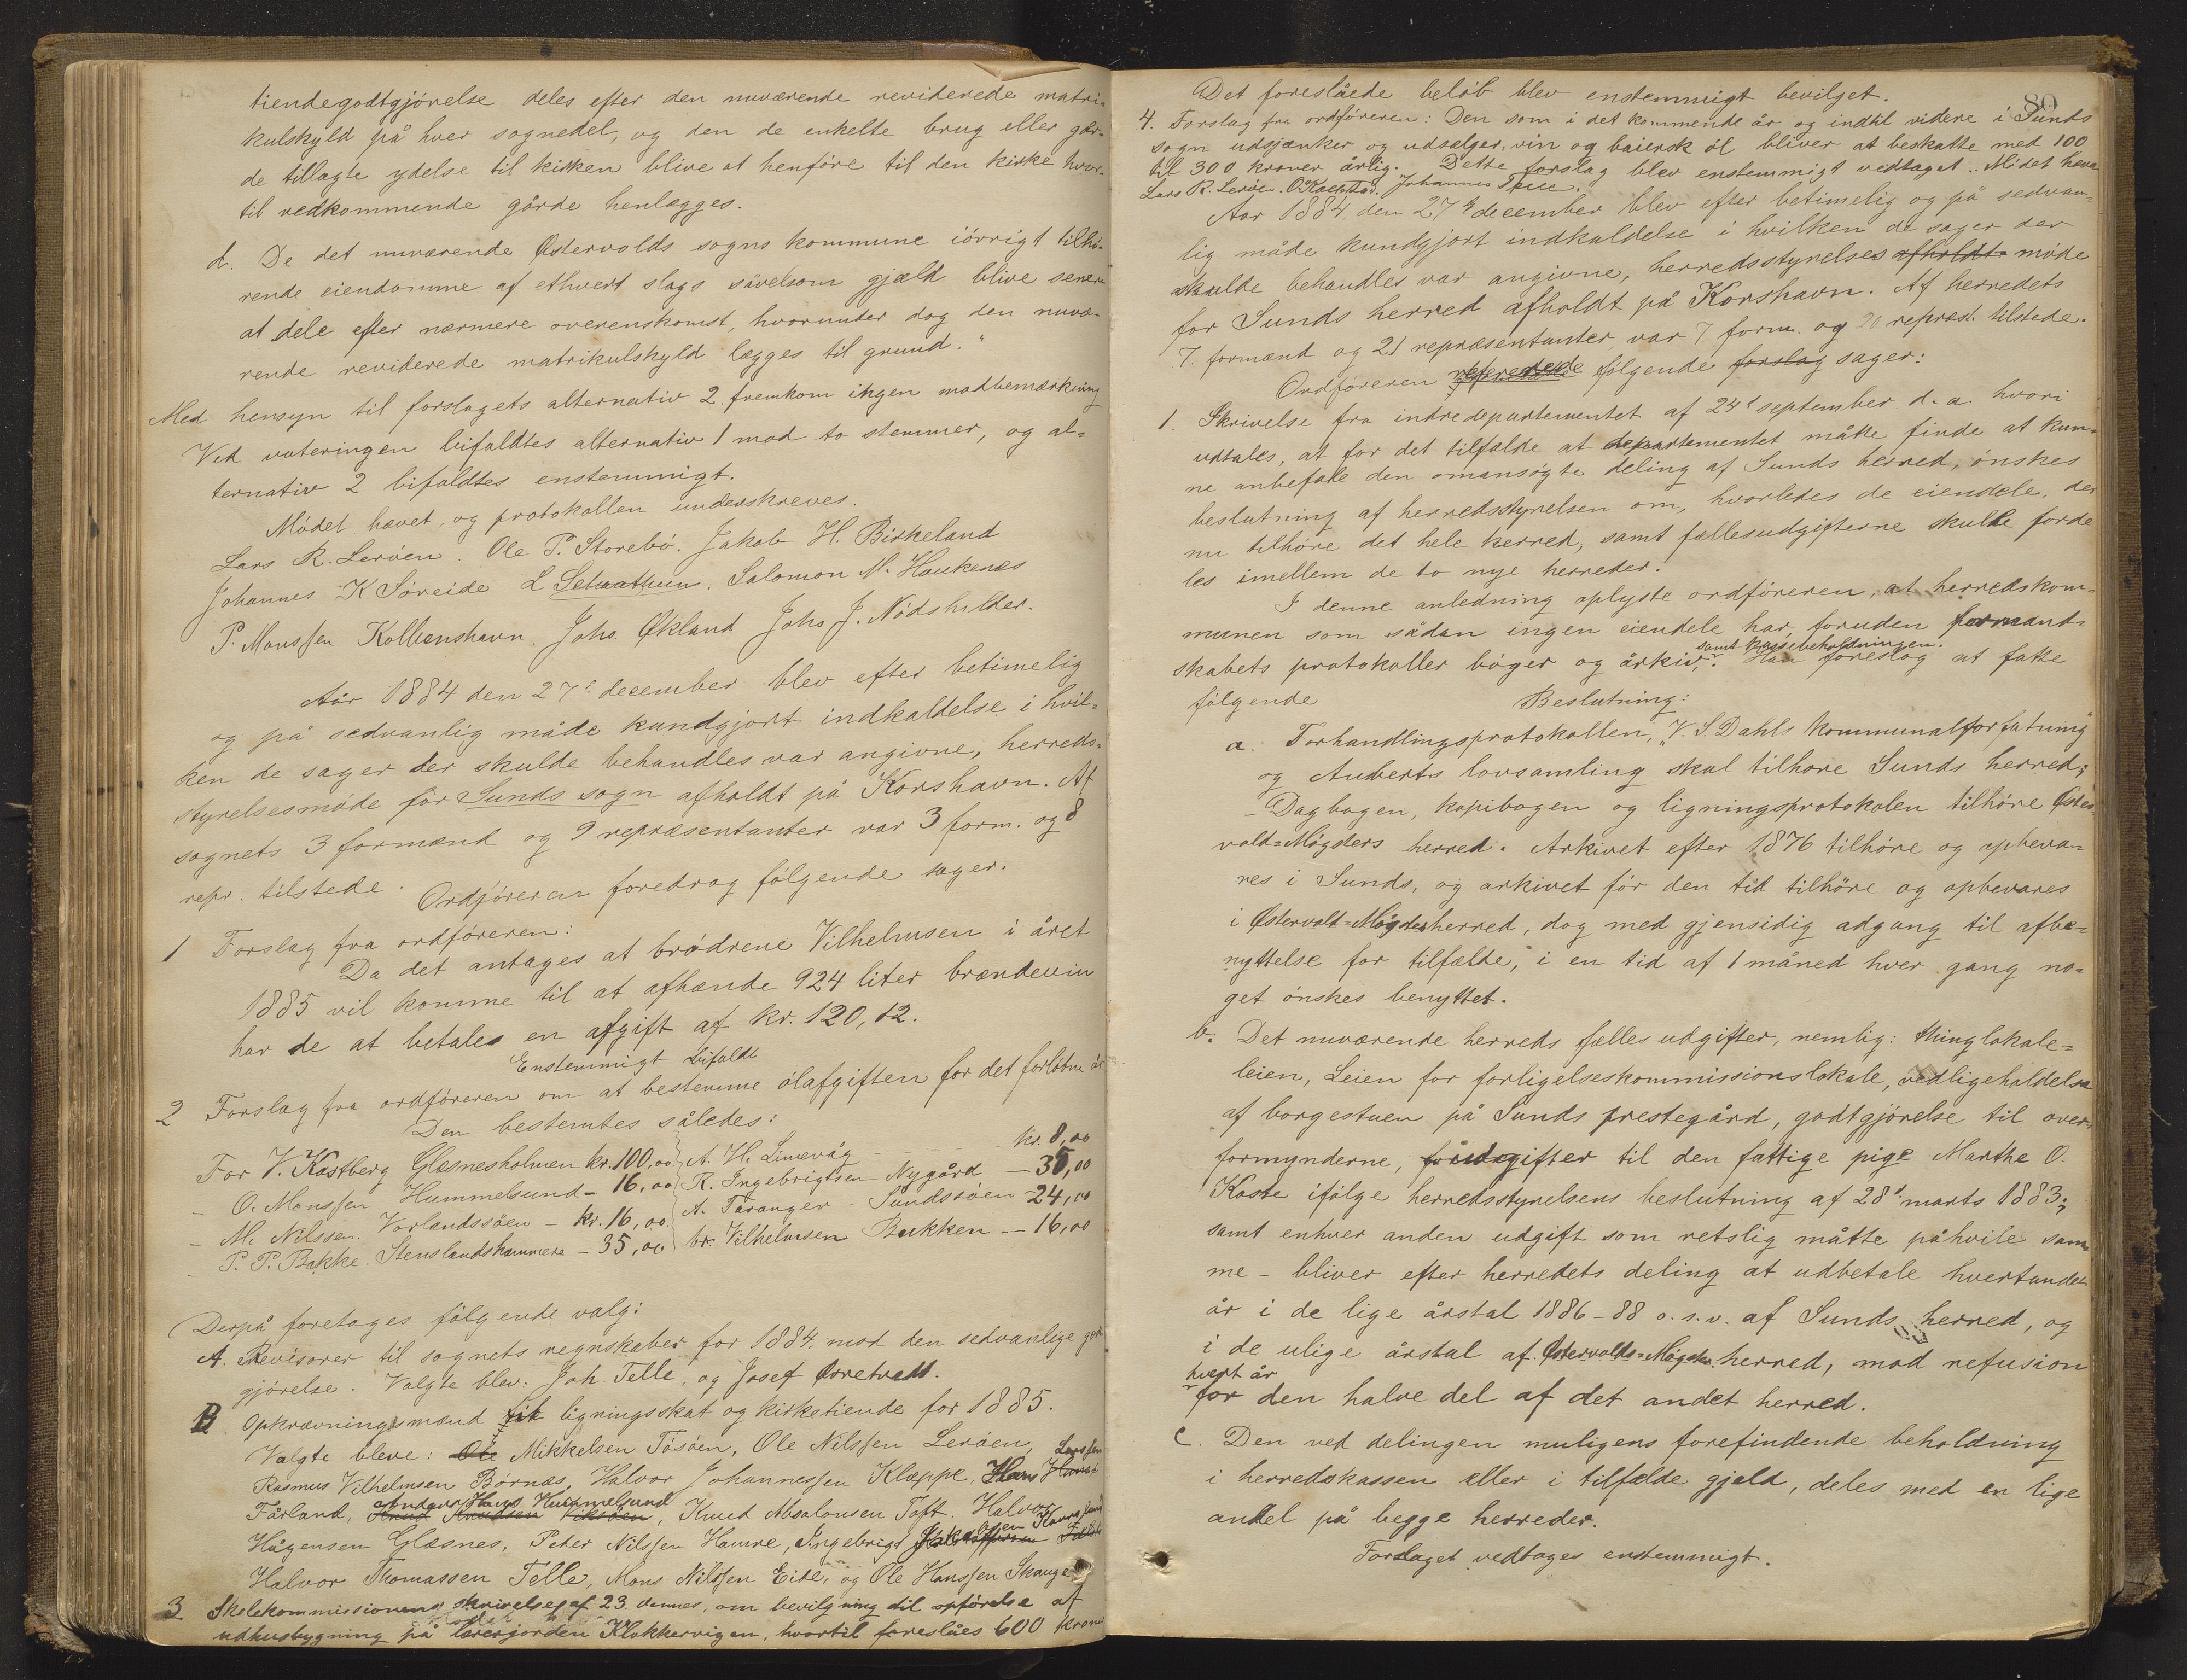 tiendegodtgjörelse deles efter den nuværende reviderede matri-
kulskyld på hver sognedel, og den de enkelte brug eller går-
de tillagte ydelse til kirken blive at henföre til den kirke hvor-
til vedkommende gårde henlægges.
d. De det nuværende Østervolds sogns kommune iövrigt tilhö-
rende eiendomme af ethvert slags såvelsom gjæld blive senere
at dele efter nærmere overenskomst, hvorunder dog den nuvæ-
rende reviderede matrikulskyld lægges til grund."
Med hensyn til forslagets alternativ 2 fremkom ingen modbemærkning
Ved voteringen bifaldtes alternativ 1 mod to stemmer, og al-
ternativ 2 bifaldtes enstemmigt.
Mödet hævet, og protokollen underskreves.
Lars R. Leröen. Ole P. Storebö. Jakob H. Birkeland
Johannes K Söreide L Selvaathun. Salomon N. Haukenæs
P. Monssen Kolbenshavn. Johs Økland Johs J. Nödshilder.
Aår 1884 den 27de december blev efter betimelig
og på sedvanlig måde kundgjort indkaldelse i hvil-
ken de sager der skulde behandles var angivne, herreds-
styrelsesmöde för Sunds sogn afholdt på Korshavn. Af
sognets 3 formænd og 9 repræsentanter var 3 form. og 8
repr. tilstede. Ordföreren foredrog fölgende sager.
1 Forslag fra ordföreren:
Da det antages at brödrene Vilhelmsen i året
1885 vil komme til at afhænde 924 liter brændevin
har de at betales en afgift af kr. 120,12.
Enstemmigt bifaldt
2 Forslag fra ordföreren om at bestemme ölafgiften for det forlöbne år
Den bestemtes således:
For V. Kastberg Glæsnesholmen kr. 100,00 A. H. Limevåg kr. 8,00
- O. Monssen Hummelsund - 16,00 R. Ingebrigtsen Nygård - 35,00
- M. Nilssen Vorlandssöen - kr. 16,00. A. Taranger - Sundssöen 24,00
- P. P. Bakke. Stenslandshammere - 35,00 br. Vilhelmsen Bækken - 16,00
Derpå foretages fölgende valg:
A. Revisorer til sognets regnskaber for 1884, mod den sedvanlige godt
gjörelse. Valgte blev: Joh. Telle, og Josef Toretveit.
B Opkrævningsmænd til ligningsskat og kirketiende for 1885.
Valgte bleve: Ole Mikkelsen Tösöen, Ole Nilssen Leröen,
Rasmus Vilhelmsen Börnæs, Halvor Johannessen Klæppe, Hans Larssen
Fårland, Anders Hans Hummelsund Knud Knudsen Viksöen, Knud Absalonsen Toft. Halvor
Hågensen Glæsnes, Peter Nilssen Hamre, Ingebrigt
Halvor Thomassen Telle, Mons Nilssen Eide, og Ole Hanssen Skauge
3. Skolekommissionens skrivelse af 23. dennes, om bevilgning til opförelse af
udhusbygning på lærerjorden Klokkervigen, hvortil foreslåes 600 kroner
80
Det foreslåede belöb blev enstemmigt bevilget.
4. Forslag fra ordföreren: Den som i det kommende år og indtil videre i Sunds
sogn udsjænker og udsælger, vin og baiersk öl bliver at beskatte med 100
til 300 kroner årlig. Dette forslag blev enstemmigt vedtaget. Mödet hævet
Lars R. Leröen. Johannes
Aar 1884 den 27de december blev efter betimelig og på sedvan-
lig måde kundgjort indkaldelse i hvilken de sager der
skulde behandles var angivne, herredsstyrelses afholdt möde
for Sunds herred afholdt på Korshavn. Af herredets
7 formænd og 21 repræsentanter var 7 form. og 20 repræst. tilstede.
Ordföreren refererede fölgende forslag sager:
1. Skrivelse fra indredepartementet af 24de september d. a. hvori
udtales, at for det tilfælde at departementet måtte finde at kun-
ne anbefale den omansögte deling af Sunds herred, önskes
beslutning af herredsstyrelsen om, hvorledes de eiendele, der
nu tilhöre det hele herred, samt fællesudgifterne skulle forde
les imellem de to nye herreder.
I denne anledning oplyste ordföreren, at herredskom-
munen som sådan ingen eiendele har foruden formand-
skabets protokoller böger og arkiv, samt kassebeholdningen. Han foreslog at fatte
fölgende Beslutning:
a. Forhandlingsprotokollen, "V. S. Dahls kommunalforfatning"
og Auberts lovsamling skal tilhöre Sunds herred;
- Dagbogen, kopibogen og ligningsprotokolen tilhöre Øster-
vold-Mögsters herred. Arkivet efter 1876 tilhöre og opbeva-
res i Sunds, og arkivet för den tid tilhöre og opbevares
i Østervold-Mögsters herred, dog med gjensidig adgang til afbe-
nyttelse for tilfælde, i en tid af 1 måned hver gang no-
get önskes benyttet.
b. Det nuværende herreds fælles udgifter, nemlig: thinglokale-
leien, Leien for forligelseskommissionslokale, vedligeholdelse
af borgestuen på Sunds prestegård, godtgjörelse til over-
formynderne, få udgifter til den fattige pige Marthe O.
Kaste ifölge herredsstyrelsens beslutning af 28de marts 1883;
samt enhver anden udgift som retslig måtte påhvile sam-
me - bliver efter herredets deling at udbetale hvertandet
år i de lige årstal 1886-88 o. s. v. af Sunds herred, og
i de ulige årstal af Østervolds-Mögsters herred, mod refusion
hvert år
for den halve del af det andet herred.
c. Den ved delingen muligens forefindende beholdning
i herredskassen eller i tilfælde gjeld, deles med en lige
andel på begge herreder.
Forslaget vedtages enstemmigt.